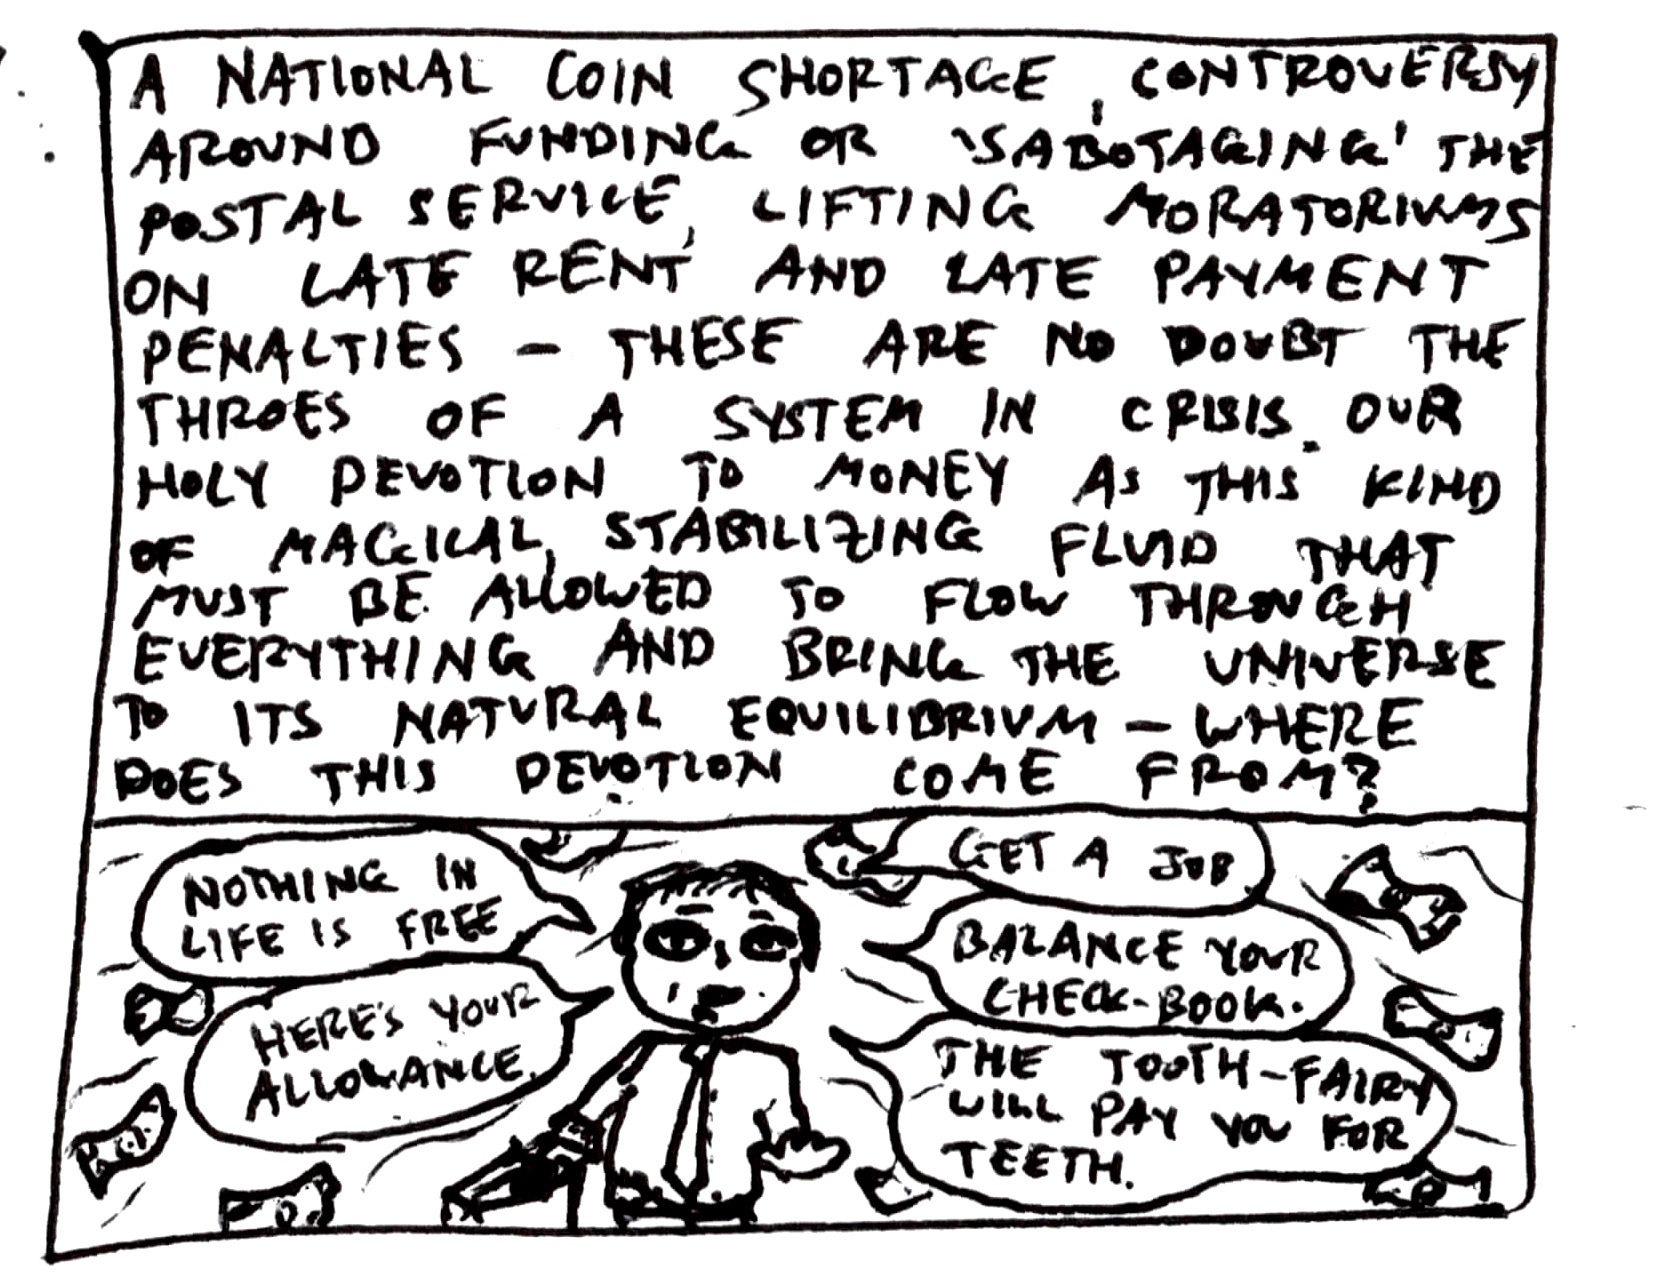 A NATIONAL COIN SHORTAGE, CONTROVERSY
AROUND FUNDING OR 'SABOTAGING' THE
POSTAL SERVICE, LIFTING MORATORIUMS
ON LATE RENT AND LATE PAYMENT
PENALTIES — THESE ARE NO DOUBT THE
THROES OF A SYSTEM IN CRISIS. OUR
HOLY DEVOTION TO MONEY AS THIS KIND
OF MAGICAL, STABILIZING FLUID THAT
MUST BE ALLOWED TO FLOW THROUGH
EVERYTHING AND BRING THE UNIVERSE
TO ITS NATURAL EQUILIBRIUM — WHERE
DOES THIS DEVOTION COME FROM?
NOTHING IN
LIFE IS FREE.
HERE'S YOUR
ALLOWANCE.
GET A JOB.
BALANCE YOUR
CHECK-BOOK.
THE TOOTH-FAIRY
WILL PAY YOU FOR
TEETH.